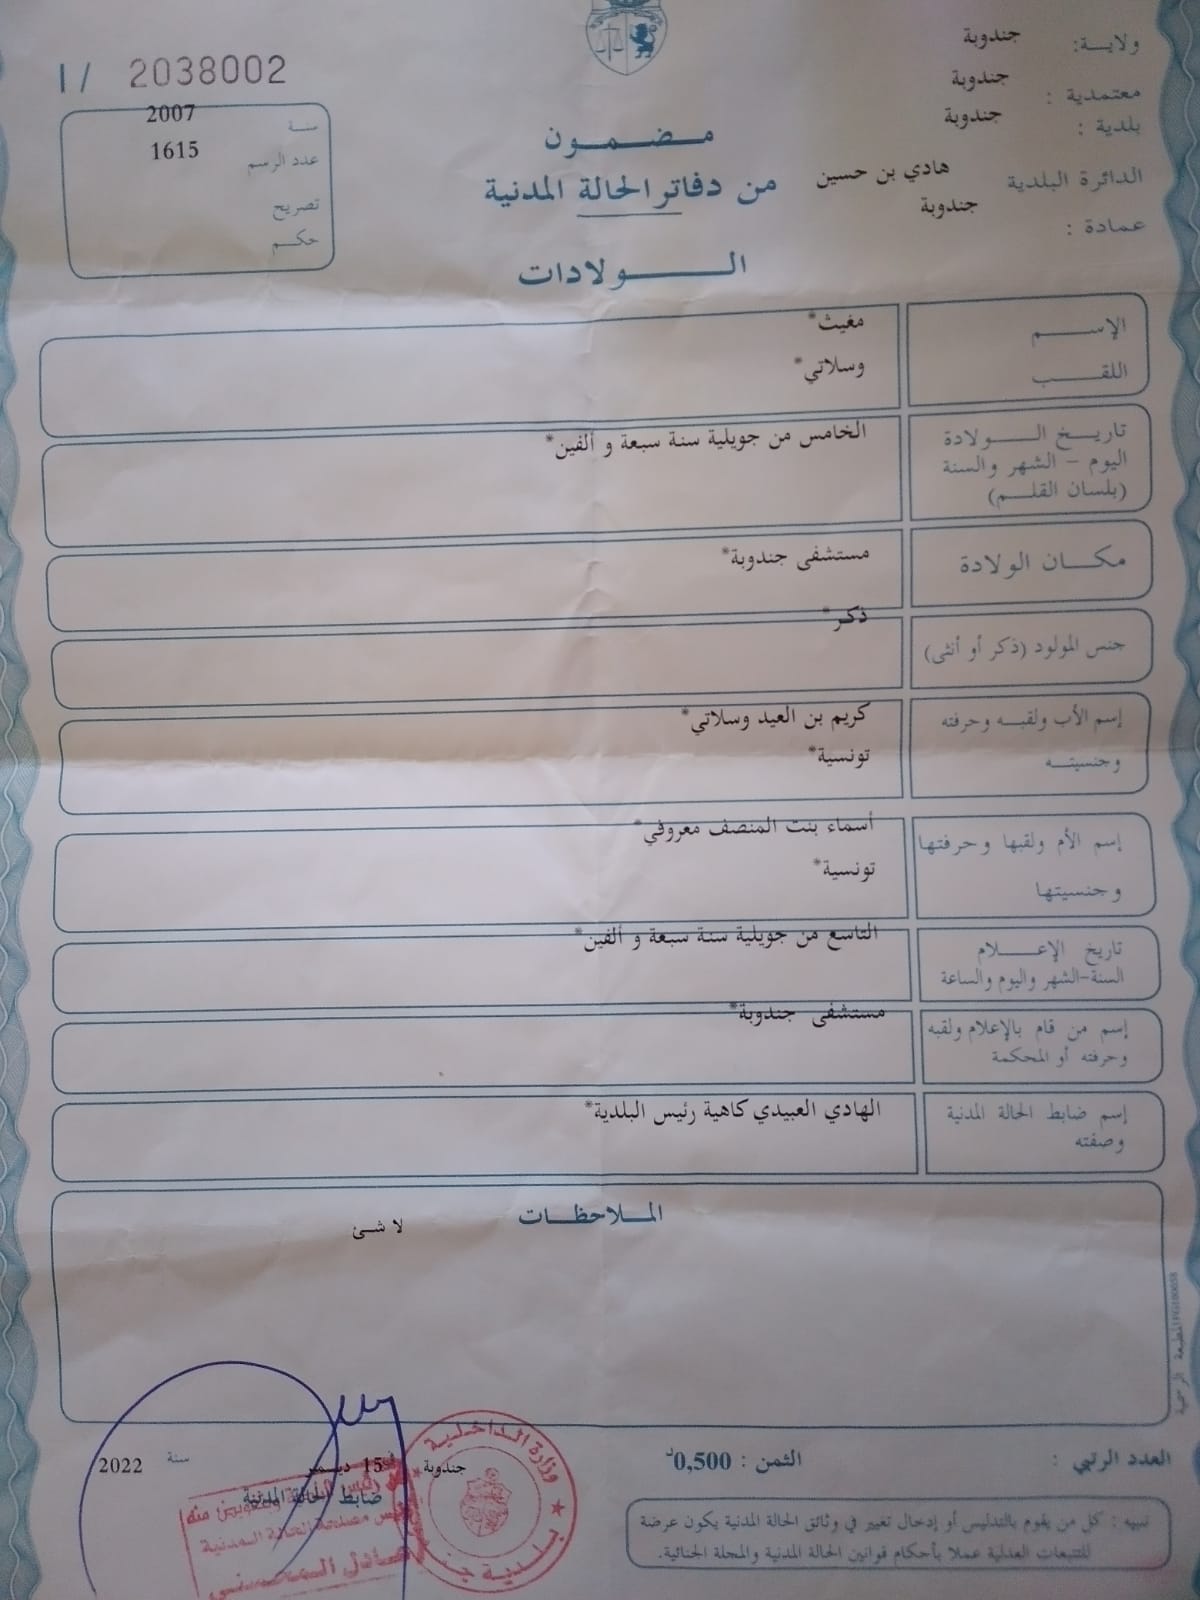 ولاية: جندوبة
معتمدية : جندوبة
بلدية : جندوبة
الدائرة البلدية هادي بن حسين
عمادة : جندوبة
مضمون
من دفاتر الحالة المدنية
الولادات
I / 2038002
سنة 2007
عدد الرسم 1615
تصريح
حكم
الإسم مغيث*
اللقب وسلاتي*
تاريخ الولادة الخامس من جويلية سنة سبعة و ألفين*
اليوم - الشهر والسنة
(بلسان القلم)
مكان الولادة مستشفى جندوبة*
جنس المولود (ذكر أو أنثى) ذكر*
إسم الأب ولقبه وحرفته كريم بن العيد وسلاتي*
وجنسيته تونسية*
إسم الأم ولقبها وحرفتها أسماء بنت المنصف معروفي*
وجنسيتها تونسية*
تاريخ الإعلام التاسع من جويلية سنة سبعة و ألفين*
السنة-الشهر واليوم والساعة
إسم من قام بالإعلام ولقبه مستشفى جندوبة*
وحرفته أو المحكمة
إسم ضابط الحالة المدنية الهادي العبيدي كاهية رئيس البلدية*
وصفته
الملاحظات
لا شئ
المطبعة الرسمية
العدد الرتبي :
الثمن : 0,500د
جندوبة في 15 ديسمبر سنة 2022
ضابط الحالة المدنية
وزارة الداخلية
بلدية
رئيس وبتفويض منه
رئيس مصلحة الحالة المدنية
عادل
تنبيه : كل من يقوم بالتدليس أو إدخال تغيير في وثائق الحالة المدنية يكون عرضة
للتتبعات العدلية عملا بأحكام قوانين الحالة المدنية والمجلة الجنائية.